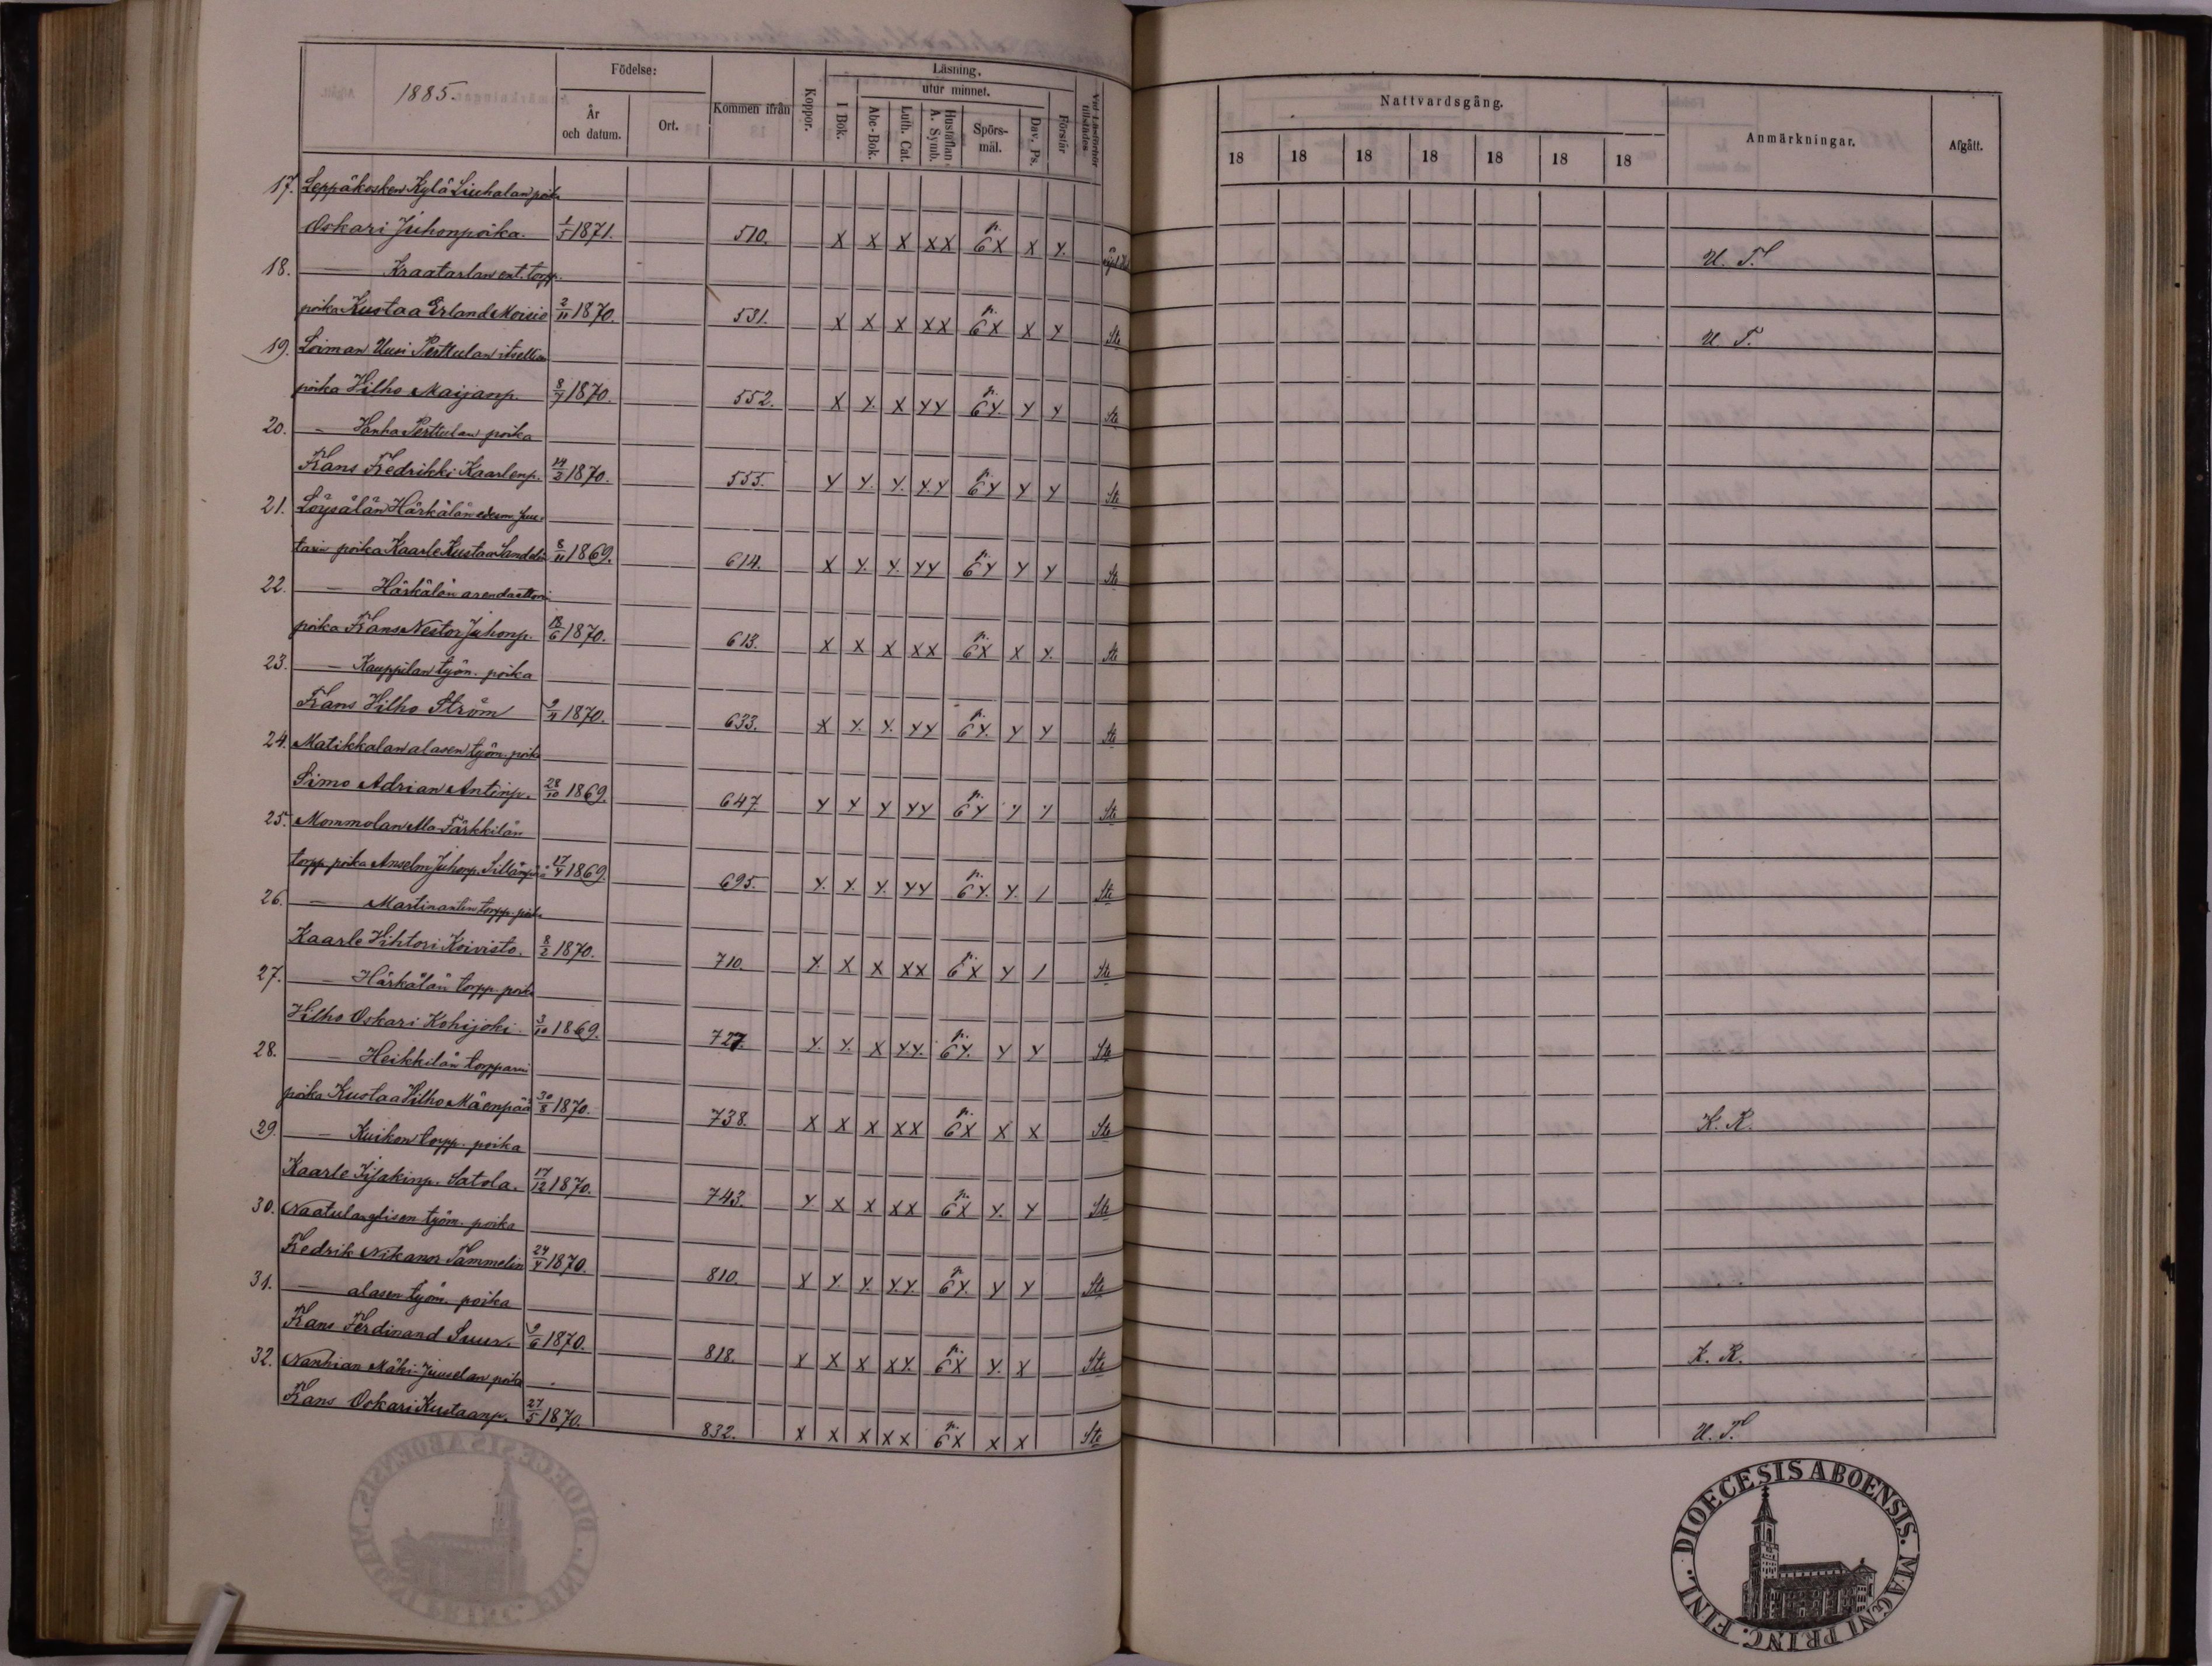 1885.
Födelse:
År och datum.
Ort.
Kommen ifrån
Koppor.
Läsning.
utur minnet.
I Bok.
Abc-Bok.
Luth. Cat.
Hustaflan A. Symb.
Spörs-mål.
Dav. Ps.
Förstår
Vid Läsförhör tillstädes
Nattvardsgång.
18 18 18 18 18 18 18
Anmärkningar.
Afgått.
17. Leppäkosken Kylä Liuhalan poika
Oskari Juhonpoika. 1/5 1871. 510. X X X XX 6X X Y. U. T.
18. — Kraatarlan ent. torpp.
poika Kustaa Erland Moisio 2/11 1870. 531. X X X XX 6X X Y Ste U. T.
19. Loiman Uusi Perttulan itsellisen
poika Vilho Maijanp. 8/7 1870. 552. X Y. X YY 6Y. Y Y Ste
20. — Vanha Perttulan poika
Frans Fredrikki Kaarlenp. 14/2 1870. 555. Y Y. Y. Y.Y 6Y Y Y Ste
21. Löysälän Härkälän edesm. Suu-
tarin poika Kaarle Kustaa Sandelin 8/11 1869. 614. X Y. Y. YY 6Y Y Y Ste
22. — Härkälön arendaattorin
poika Frans Nestor Juhonp. 18/6 1870. 613. X X X XX 6X X Y. Ste
23. — Kauppilan työn. poika
Frans Vilho Ström 9/4 1870. 633. X Y. Y. YY 6Y. Y Y Ste
24. Matikkalan alasen työm. poika
Simo Adrian Antinp. 28/10 1869. 647. Y Y Y YY 6Y Y Y Ste
25. Mommolan Ala Färkkilän
torpp. poika Anselm Juhonp. Sillänpää 17/4 1869. 695. Y. Y. Y. YY 6Y. Y. 1 Ste
26. — Martinantin torpp. poika
Kaarle Vihtori Koivisto. 8/2 1870. 710. Y. X X XX 6X Y 1 Ste
27. — Härkälän torpp. poika
Vilho Oskari Kohijoki. 3/10 1869. 727. Y. Y. X Y.Y. 6Y. Y Y Ste
28. — Heikkilän torpparin
poika Kustaa Vilho Mäenpää 30/8 1870. 738. X X X XX 6X X X Ste K. R.
29. — Kuikon torpp. poika
Kaarle Iisakinp. Satola. 17/12 1870. 743. Y X X XX 6X Y. Y Ste
30. Naatula ylisen työm. poika
Fredrik Nikanor Tammelin 24/4 1870. 810. X Y. Y. Y.Y. 6Y. Y Y Ste
31. — alasen työm. poika
Frans Ferdinand Suur. 9/6 1870. 818. X X X XY. 6X Y. X Ste K. R.
32. Nanhian Mäki-Juuselan poika
Frans Oskari Kustaanp. 27/5 1870. 832. X X X XX 6X X X Ste U. T.
DIOECESIS ABOENSIS. MAGNI PRINC. FINL.